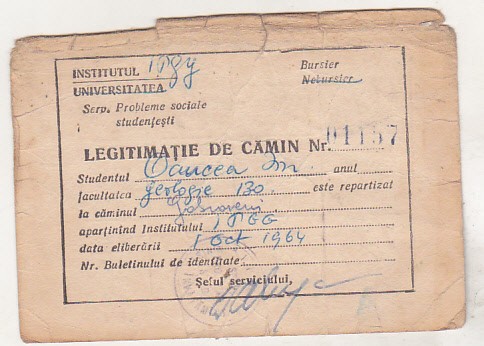 INSTITUTUL IPGG Bursier
UNIVERSITATEA Nebursier
Serv. Probleme sociale
studențești
LEGITIMAȚIE DE CĂMIN Nr. 01157
Studentul Oancea M. anul
facultatea geologie 130 este repartizat
la căminul
aparținînd Institutului IPGG
data eliberării 1 Oct 1964
Nr. Buletinului de identitate
Șeful serviciului,